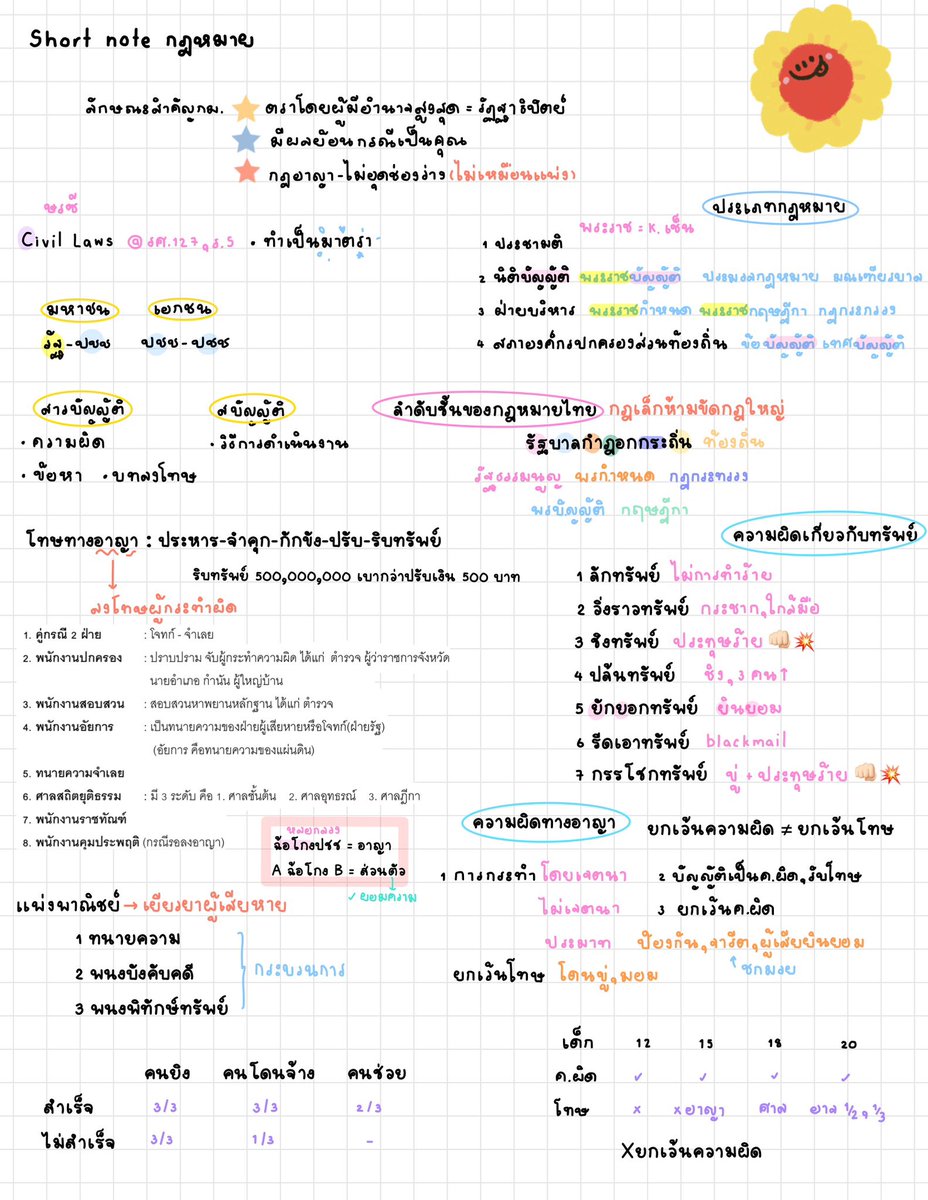 Short note กฎหมาย
ลักษณะสำคัญกม. ตราโดยผู้มีอำนาจสูงสุด = รัฏฐาธิปัตย์
มีผลย้อนกรณีเป็นคุณ
กฎอาญา-ไม่อุดช่องว่าง (ไม่เหมือนแพ่ง)
Civil Laws @รศ.127,ร.5 • ทำเป็นมาตรา
มหาชน เอกชน
รัฐ-ปชช ปชช-ปชช
ประเภทกฎหมาย
พระราช = K. เซ็น
1 ประชามติ
2 นิติบัญญัติ พระราชบัญญัติ ประมวลกฎหมาย มณเฑียรบาล
3 ฝ่ายบริหาร พระราชกำหนด พระราชกฤษฎีกา กฎกระทรวง
4 สภาองค์กรปกครองส่วนท้องถิ่น ข้อบัญญัติ เทศบัญญัติ
สารบัญญัติ สบัญญัติ
• ความผิด • วิธีการดำเนินงาน
• ข้อหา • บทลงโทษ
ลำดับชั้นของกฎหมายไทย กฎเล็กห้ามขัดกฎใหญ่
รัฐบาลกำฎอกกระถิ่น ท้องถิ่น
รัฐธรรมนูญ พรกำหนด กฎกระทรวง
พรบัญญัติ กฤษฎีกา
โทษทางอาญา : ประหาร-จำคุก-กักขัง-ปรับ-ริบทรัพย์
ริบทรัพย์ 500,000,000 เบากว่าปรับเงิน 500 บาท
ลงโทษผู้กระทำผิด
1. คู่กรณี 2 ฝ่าย : โจทก์ - จำเลย
2. พนักงานปกครอง : ปราบปราม จับผู้กระทำความผิด ได้แก่ ตำรวจ ผู้ว่าราชการจังหวัด
นายอำเภอ กำนัน ผู้ใหญ่บ้าน
3. พนักงานสอบสวน : สอบสวนหาพยานหลักฐาน ได้แก่ ตำรวจ
4. พนักงานอัยการ : เป็นทนายความของฝ่ายผู้เสียหายหรือโจทก์(ฝ่ายรัฐ)
(อัยการ คือทนายความของแผ่นดิน)
5. ทนายความจำเลย
6. ศาลสถิตยุติธรรม : มี 3 ระดับ คือ 1. ศาลชั้นต้น 2. ศาลอุทธรณ์ 3. ศาลฎีกา
7. พนักงานราชทัณฑ์
8. พนักงานคุมประพฤติ (กรณีรอลงอาญา)
หลอกลวง
ฉ้อโกงปชช = อาญา
A ฉ้อโกง B = ส่วนตัว
✓ ยอมความ
ความผิดเกี่ยวกับทรัพย์
1 ลักทรัพย์ ไม่การทำร้าย
2 วิ่งราวทรัพย์ กระชาก,ใกล้มือ
3 ชิงทรัพย์ ประทุษร้าย 👊🏻💥
4 ปล้นทรัพย์ ชิง,3 คน↑
5 ยักยอกทรัพย์ ยินยอม
6 รีดเอาทรัพย์ blackmail
7 กรรโชกทรัพย์ ขู่ + ประทุษร้าย 👊🏻💥
แพ่งพาณิชย์ → เยียวยาผู้เสียหาย
1 ทนายความ
2 พนงบังคับคดี
3 พนงพิทักษ์ทรัพย์
กระบวนการ
ความผิดทางอาญา ยกเว้นความผิด ≠ ยกเว้นโทษ
1 การกระทำ โดยเจตนา 2 บัญญัติเป็นค.ผิด,รับโทษ
ไม่เจตนา 3 ยกเว้นค.ผิด
ประมาท ป้องกัน,จารีต,ผู้เสียยินยอม
↑ ชกมวย
ยกเว้นโทษ โดนขู่,มอม
คนยิง คนโดนจ้าง คนช่วย
สำเร็จ 3/3 3/3 2/3
ไม่สำเร็จ 3/3 1/3 -
เด็ก 12 15 18 20
ค.ผิด ✓ ✓ ✓ ✓
โทษ x xอาญา ศาล 1/2,1/3
Xยกเว้นความผิด